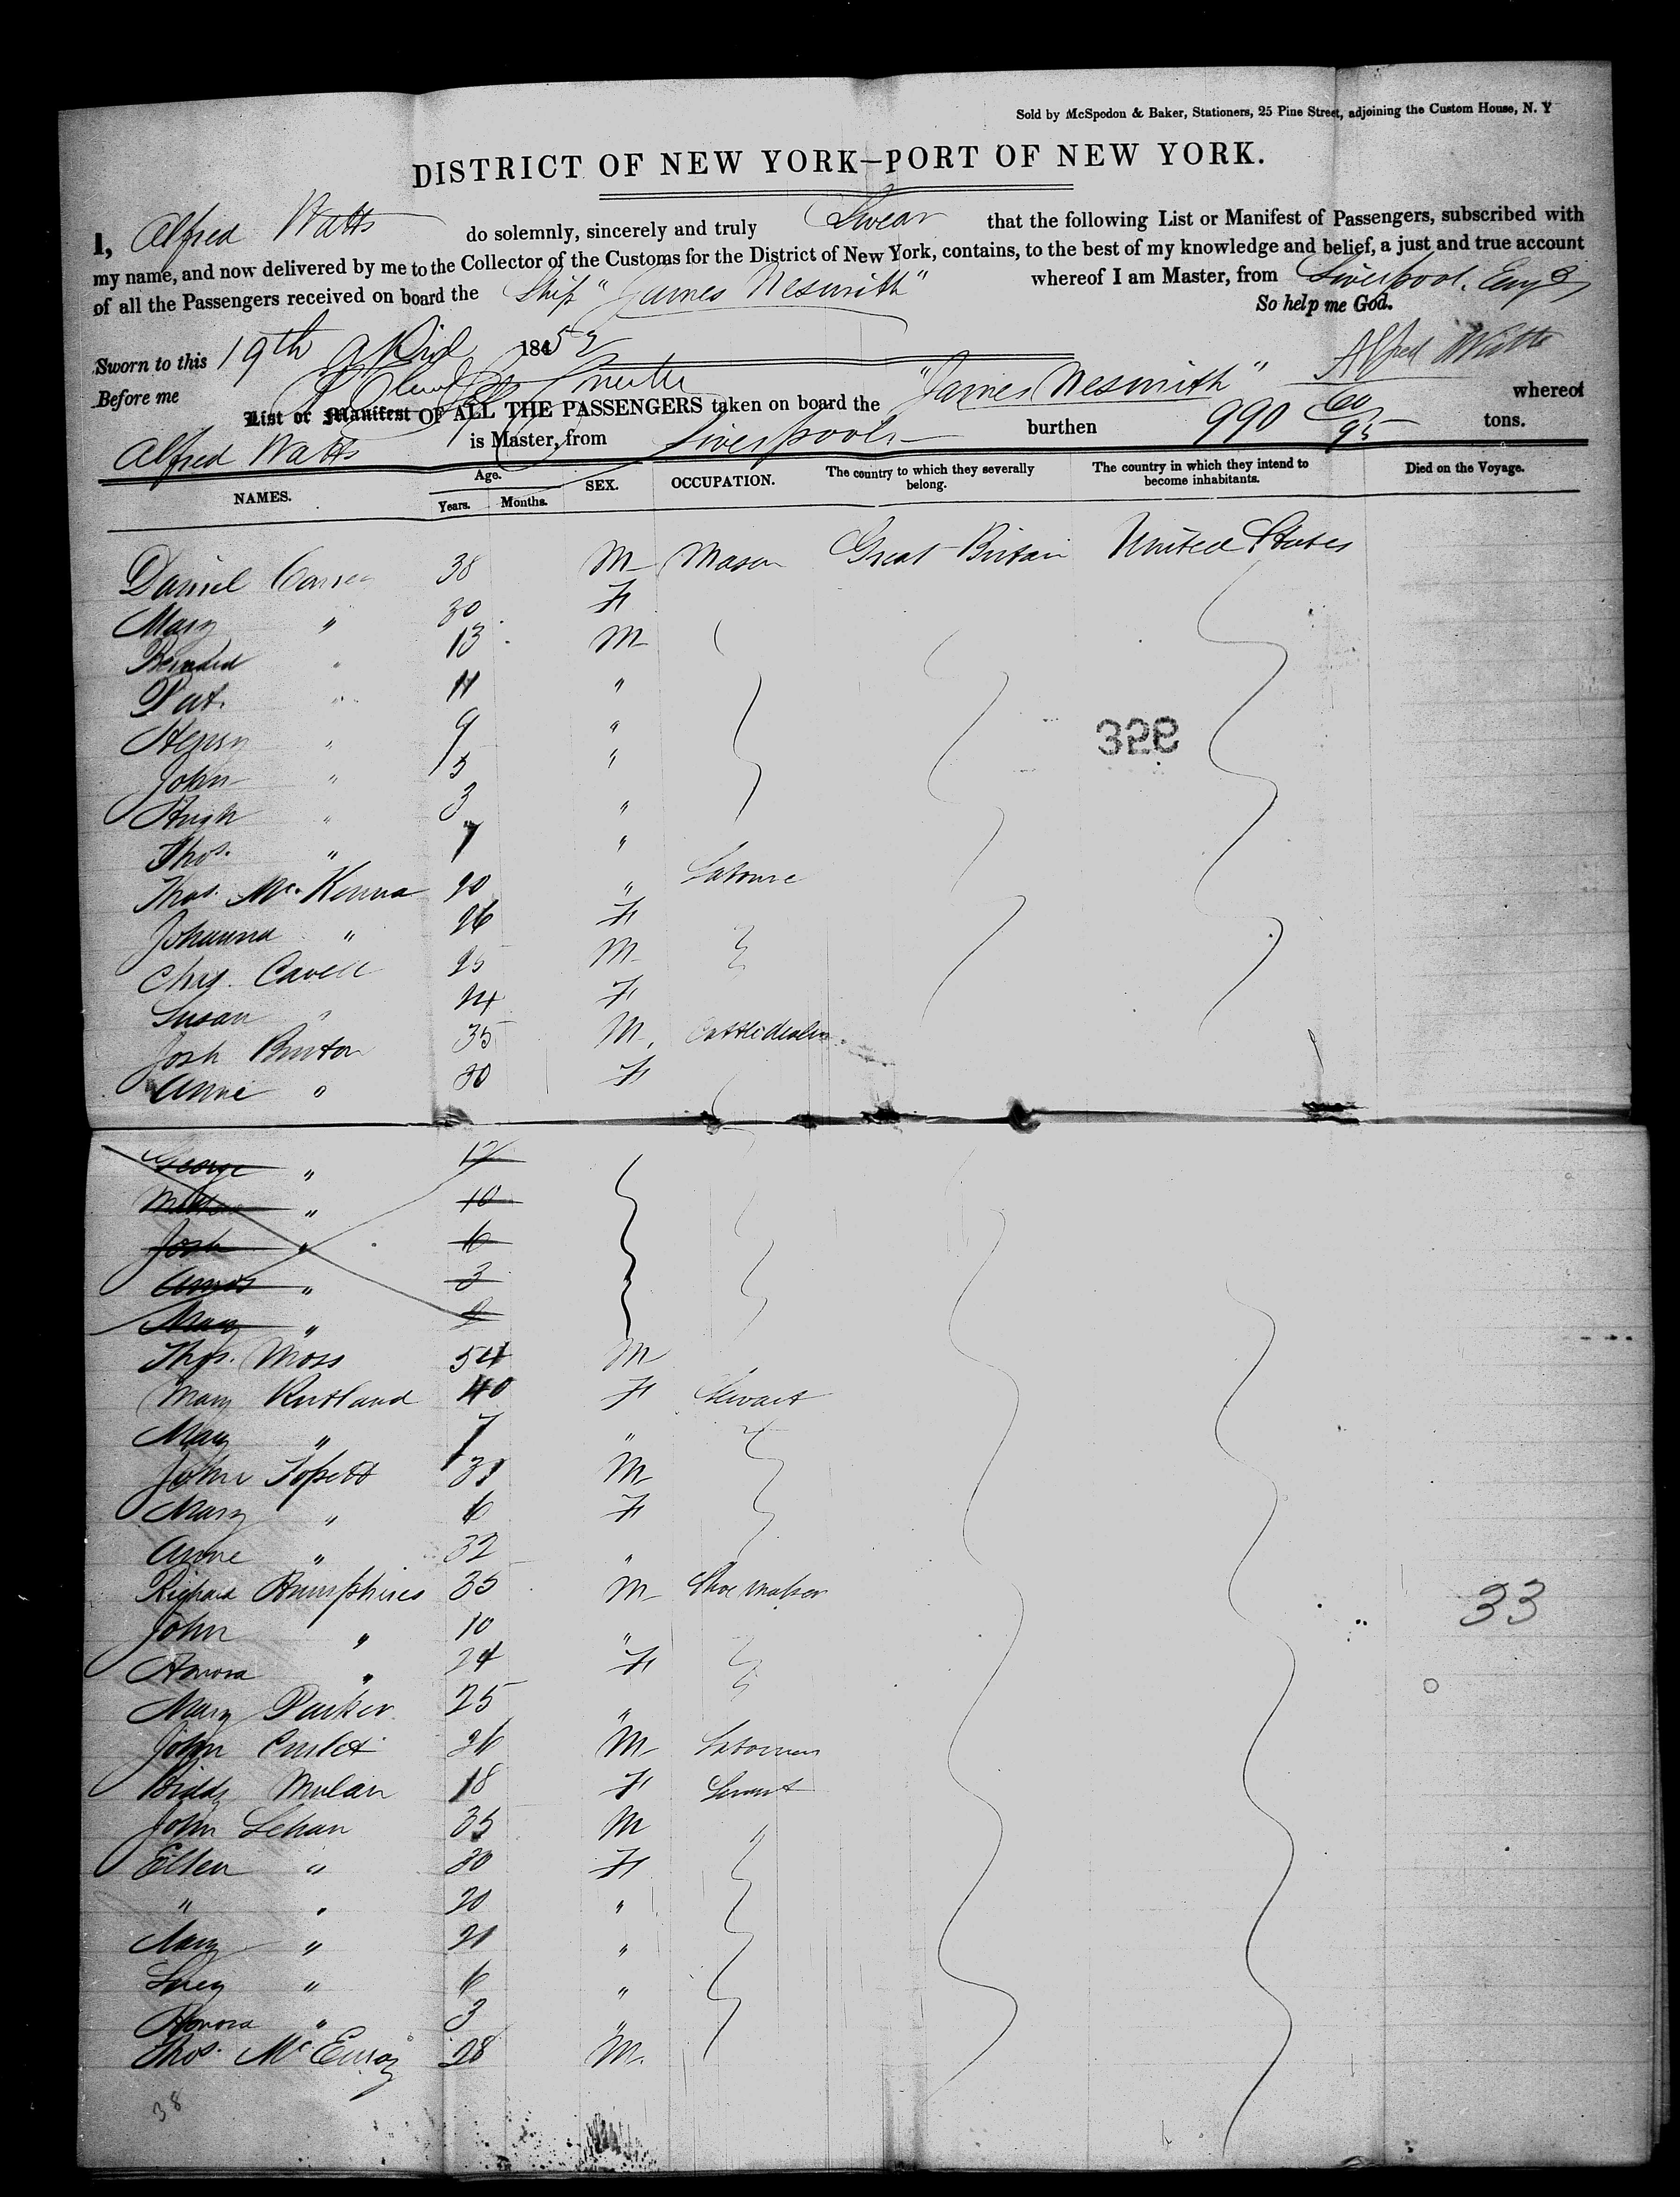 Sold by McSpedon & Baker, Stationers, 25 Pine Street, adjoining the Custom House, N. Y
DISTRICT OF NEW YORK—PORT OF NEW YORK.
I, Alfred Watts do solemnly, sincerely and truly Swear that the following List or Manifest of Passengers, subscribed with
my name, and now delivered by me to the Collector of the Customs for the District of New York, contains, to the best of my knowledge and belief, a just and true account
of all the Passengers received on board the Ship "James Nesmith" whereof I am Master, from Liverpool. Eng
So help me God.
Sworn to this 19th April 18452
Alfred Watts
Before me
List or Manifest OF ALL THE PASSENGERS taken on board the "James Nesmith" whereof
Alfred Watts is Master, from Liverpool burthen 990 60/95 tons.
NAMES. Age. Years. Months. SEX. OCCUPATION. The country to which they severally belong. The country in which they intend to become inhabitants. Died on the Voyage.
Daniel 38 M Mason Great Britain United States
Mary " 30 F
Bernard " 13 M
Pat. " 11 "
Henry " 9 "
John " 5 "
328
Hugh " 3 "
Thos. " 1 "
Thos. McKenna 20 " Laborer
Johanna " 26 F
Chrs. Cavell 25 M
Susan " 24 F
Josh Burton 35 M Cattle dealer
Anne " 30 F
George " 12
" 10
Josh " 6
Amos " 3
Mary "
Thos. Moss 54 M
Mary Rutland 40 F Servant
Mary " 7 "
John Topett 31 M
Mary " 6 F
Anne " 32 "
Richard Humphries 35 M Shoemaker
33
John " 10 "
Honora " 24 F
Mary Parker 25 "
John 26 M Laborer
Biddy Mulan 18 F Servant
John Lehan 35 M
Ellen " 30 F
" " 20 "
Mary " 21 "
Lucy " 6 "
Honora " 3 "
Thos. McEvroy 28 M.
38